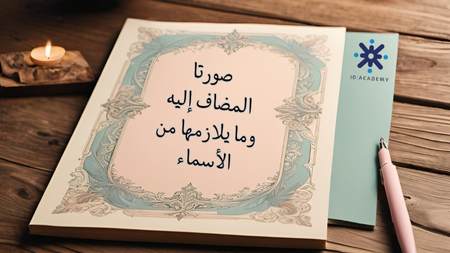 صورتا
المضاف إليه
وما يلازمها من
الأسماء
IO|ACADEMY